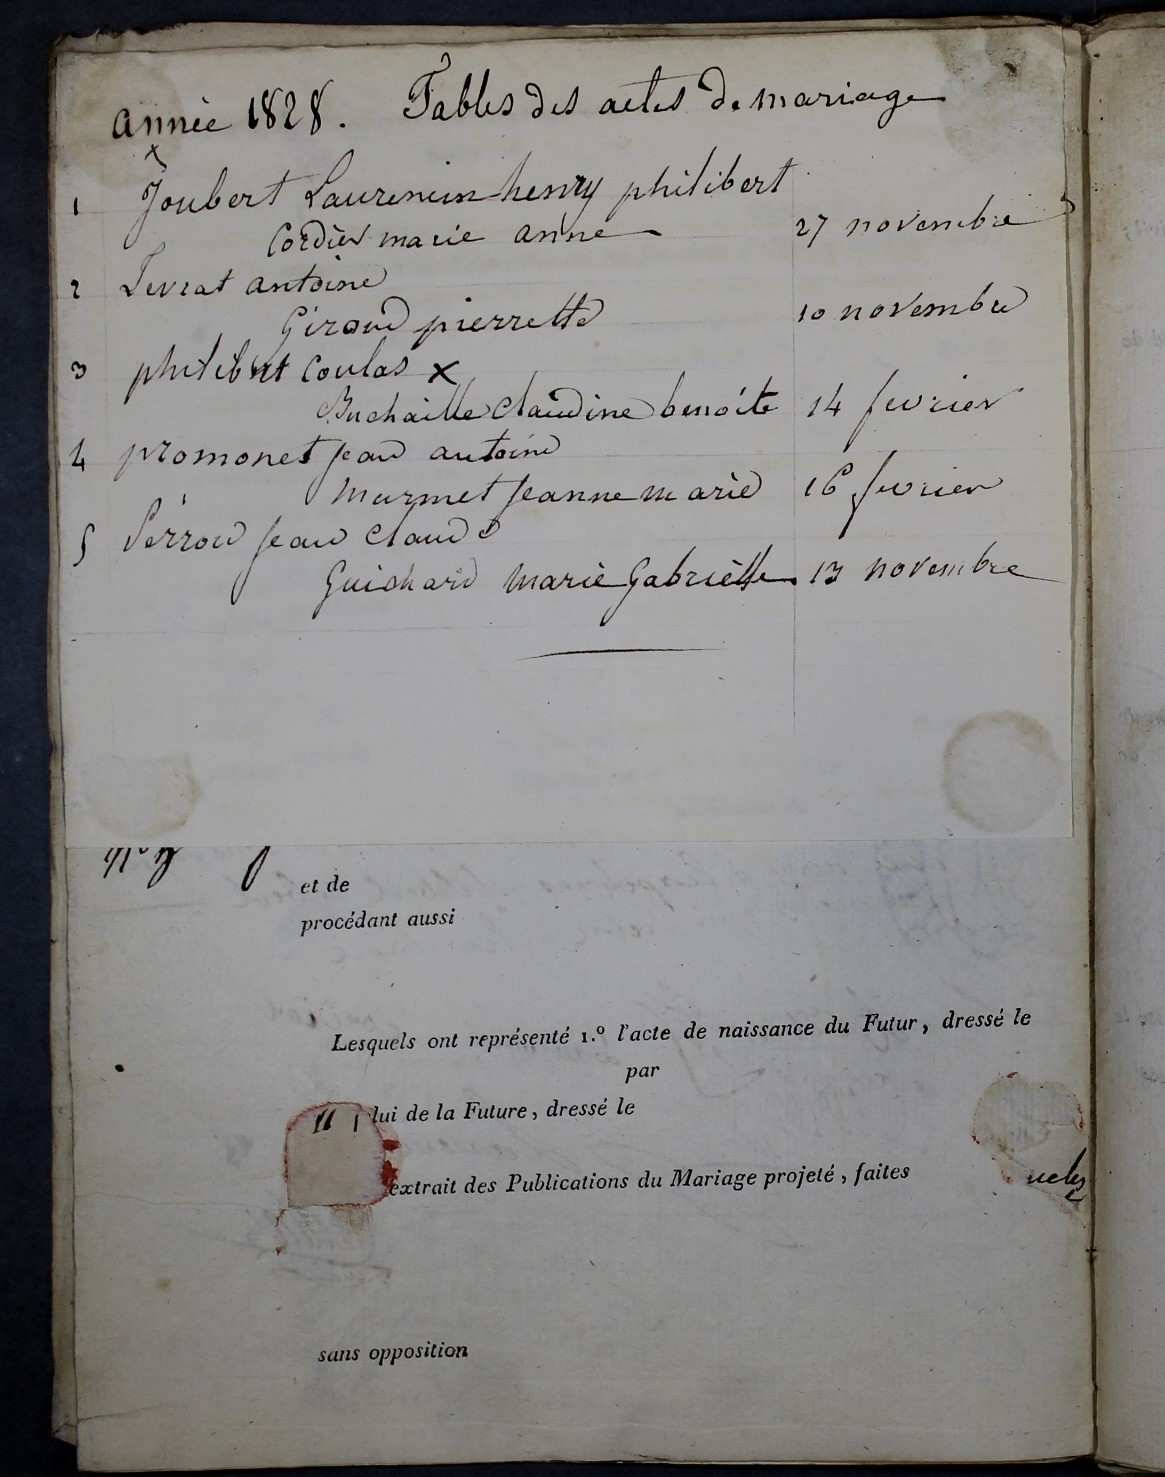 année 1828. Tables des actes de mariage
x
1 Joubert Laurencin henry philibert
Cordier marie anne 27 novembre
2 Levrat antoine
Giroud pierrette 10 novembre
3 philibert Coulas x
Buchaille Claudine benoîte 14 fevrier
4 promonet jean antoine
Murmet jeanne marie 16 fevrier
5 Perroud jean claude
Guichard marie Gabrielle 13 novembre
et de
procédant aussi
Lesquels ont représenté 1.º l'acte de naissance du Futur, dressé le
par
lui de la Future, dressé le
extrait des Publications du Mariage projeté, faites
sans opposition